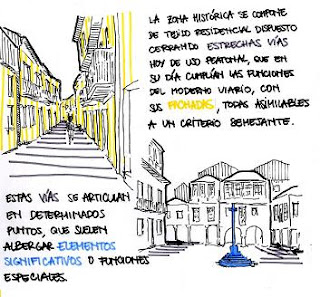 LA ZONA HISTÓRICA SE COMPONE
DE TEJIDO RESIDENCIAL DISPUESTO
CERRANDO ESTRECHAS VÍAS
HOY DE USO PEATONAL, QUE EN
SU DÍA CUMPLÍAN LAS FUNCIONES
DEL MODERNO VIARIO, CON
SUS FACHADAS, TODAS ASIMILABLES
A UN CRITERIO SEMEJANTE.
ESTAS VÍAS SE ARTICULAN
EN DETERMINADOS
PUNTOS, QUE SUELEN
ALBERGAR ELEMENTOS
SIGNIFICATIVOS O FUNCIONES
ESPECIALES.